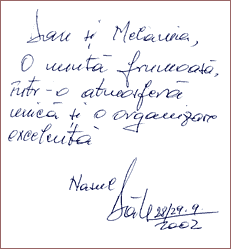 Dan și Melania,
O nuntă frumoasă,
într-o atmosferă
unică și o organizare
excelentă
Nasul
28/29.9
2002